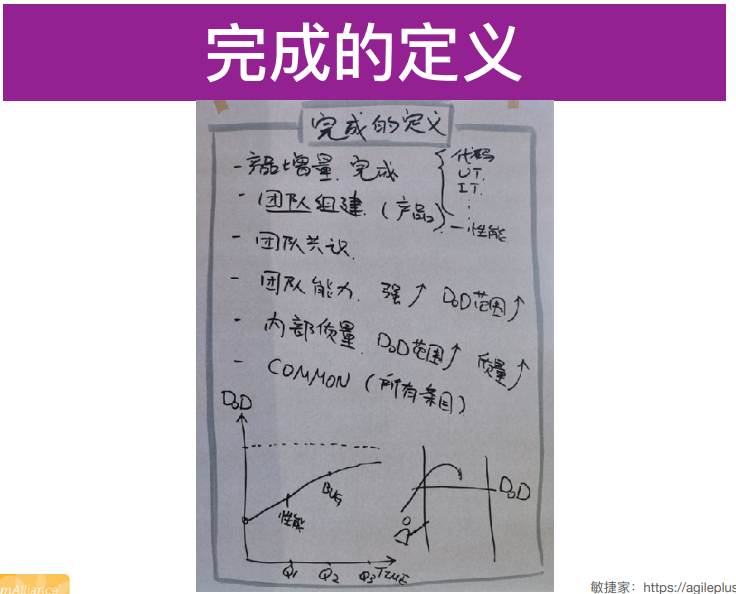 完成的定义
完成的定义
- 产品增量. 完成 { 代码
UT.
IT.
⋮
- 性能
- 团队组建. (产品)
- 团队共识.
- 团队能力. 强↑ DoD范围↑
- 内部质量. DoD范围↑ 质量↑
- COMMON (所有条目)
DoD
性能
BUG
Q1 Q2 Q3 TIME
DoD
mAlliance
敏捷家：https://agileplus